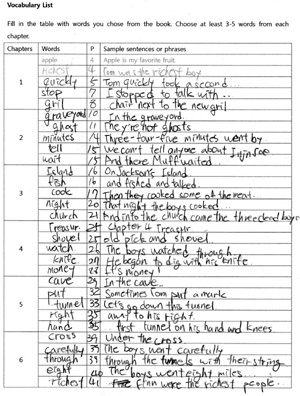 Vocabulary List
Fill in the table with words you chose from the book. Choose at least 3-5 words from each
chapter.
Chapters Words P Sample sentences or phrases
apple 4 Apple is my favorite fruit.
richest 4 Tom was the richest boy
1 quickly 5 Tom quickly took a second...
stop 7 I stopped to talk with...
gril 8 chair next to the new gril
graveyard 10 In the graveyard.
2 ghost 11 They're not ghosts
minutes 14 Three-four-five minutes went by
tell 15 we can't tell anyone about Injin Joe
wait 15 And there Muff waited...
Island 16 On Jackson's Island.
3 fish 16 and fished and talked.
cook 17 Then they cooked some of the meat.
night 20 That night the boys cooked...
church 21 And into the church came the three dead boys
Treasur Chapter 4 Treasur
4 shovel 25 old pick and shovel
watch 26 The boys watched through
knife 27 He began to dig with his knife
money It's money!
cave 29 In the cave
5 put 32 Sometimes Tom put a mark
tunnel 33 Let's go down this tunnel
right 35 away to his right.
hand 35 first tunnel on his hand and knees
cross 39 Under the cross.
6 carefully 39 The boys went carefully
through 39 through the tunnels with their string
eight 40 The boys went eight miles...
richest 41 Finn were the richest people.